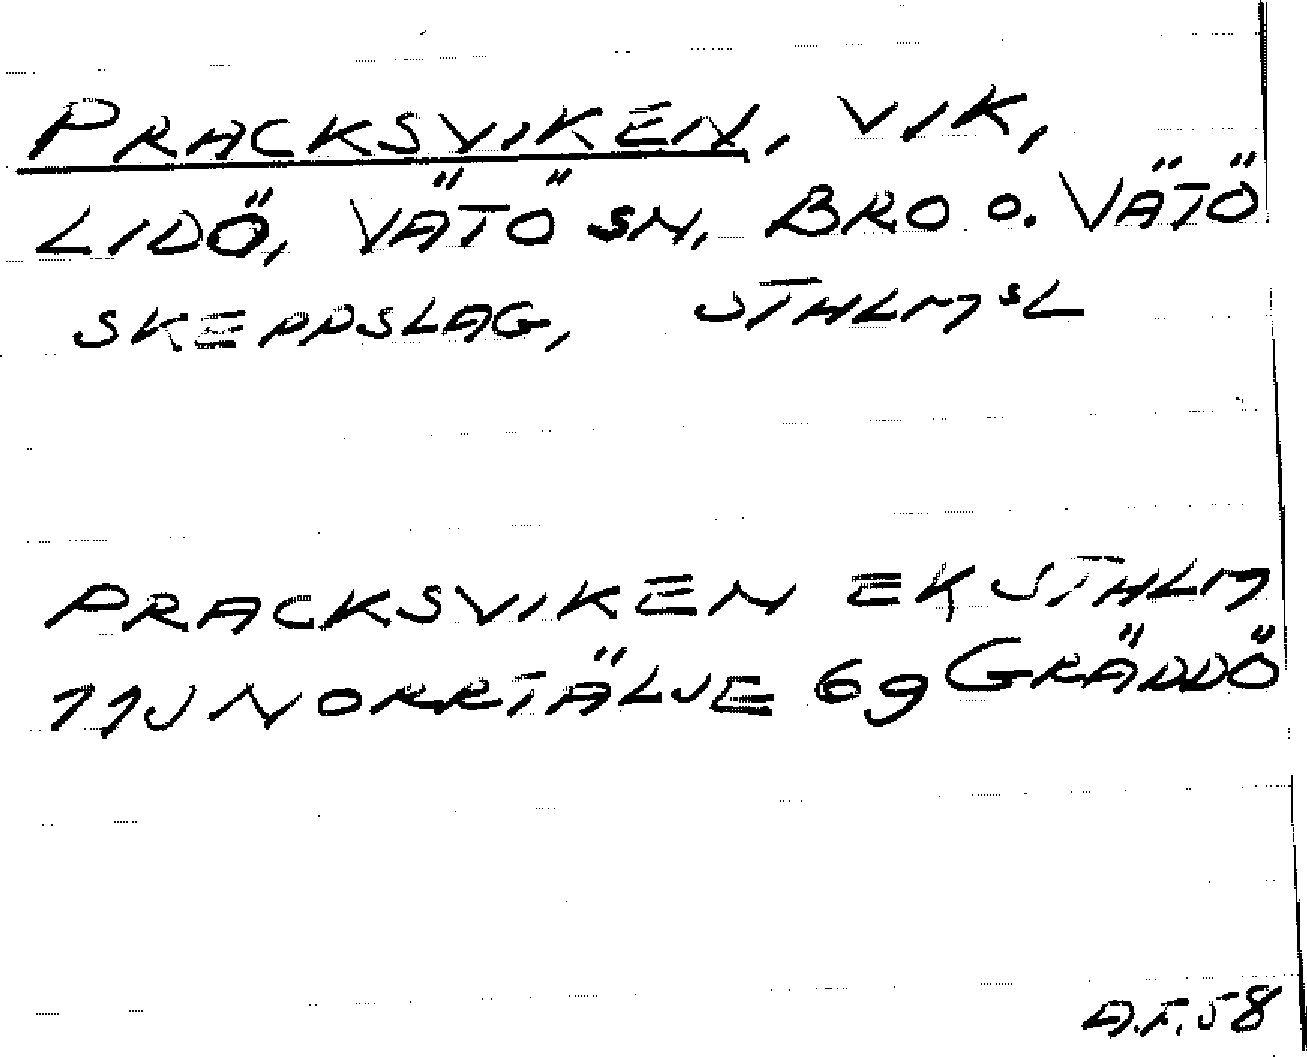 PRACKSVIKEN, VIK,
LIDÖ, VÄTÖ SN, BRO O. VÄTÖ
SKEPPSLAG, STHLMSL
PRACKSVIKEN EK STHLM
11J NORRTÄLJE 69 GRÄDDÖ
A.F. 58